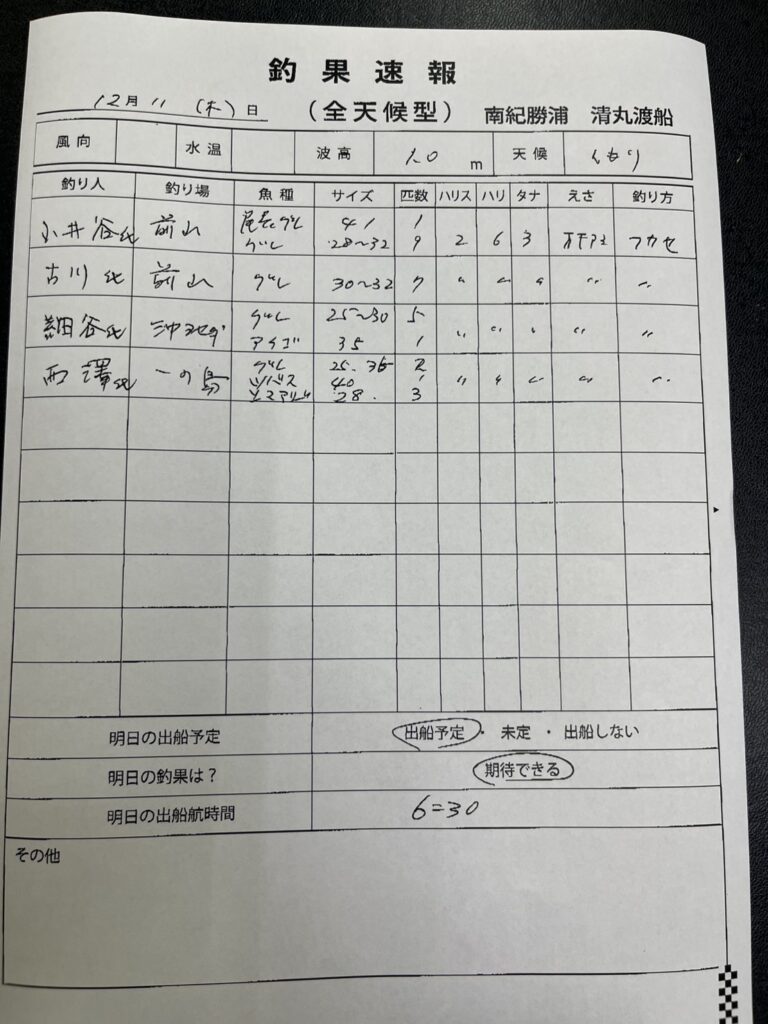 釣果速報
12月11(木)日 (全天候型) 南紀勝浦 清丸渡船
風向 水温 波高 1.0 m 天候 くもり
釣り人 釣り場 魚種 サイズ 匹数 ハリス ハリ タナ えさ 釣り方
小井谷氏 前山 尾長グレ 41 1
グレ 28〜32 9 2 6 3 オキアミ フカセ
古川氏 前山 グレ 30〜32 7 〃 〃 〃 〃 〃
細谷氏 グレ 25〜30 5
アイゴ 35 1 〃 〃 〃 〃 〃
西澤氏 一の島 グレ 25.36 2
ツバス 40 1 〃 〃 〃 〃 〃
28. 3
明日の出船予定 出船予定・未定・出船しない
明日の釣果は? 期待できる
明日の出船航時間 6=30
その他